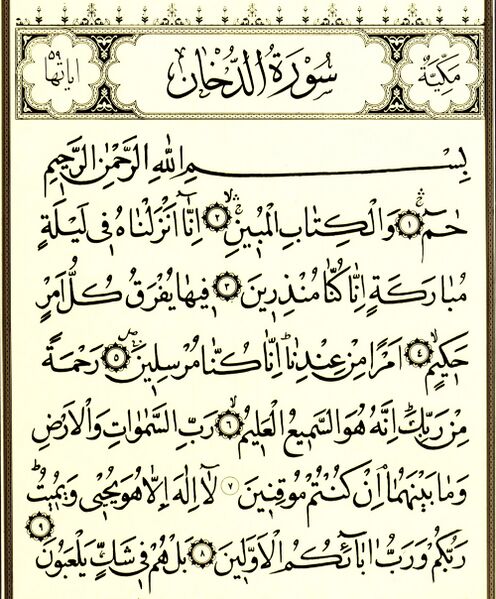 مَكِّيَّةٌ سُورَةُ الدُّخَانِ اٰيَاتُهَا ٥٩
بِسْمِ اللّٰهِ الرَّحْمٰنِ الرَّحٖيمِ
حٰمٓ ۚ ﴿١﴾ وَالْكِتَابِ الْمُبٖينِ ۙ ﴿٢﴾ اِنَّٓا اَنْزَلْنَاهُ فٖى لَيْلَةٍ
مُبَارَكَةٍ اِنَّا كُنَّا مُنْذِرٖينَ ﴿٣﴾ فٖيهَا يُفْرَقُ كُلُّ اَمْرٍ
حَكٖيمٍ ۙ ﴿٤﴾ اَمْرًا مِنْ عِنْدِنَا ؕ اِنَّا كُنَّا مُرْسِلٖينَ ۚ ﴿٥﴾ رَحْمَةً
مِنْ رَبِّكَ ؕ اِنَّهُ هُوَ السَّمٖيعُ الْعَلٖيمُ ۙ ﴿٦﴾ رَبِّ السَّمٰوَاتِ وَالْاَرْضِ
وَمَا بَيْنَهُمَا ۢ اِنْ كُنْتُمْ مُوقِنٖينَ ﴿٧﴾ لَٓا اِلٰهَ اِلَّا هُوَ يُحْيٖى وَيُمٖيتُ ؕ
رَبُّكُمْ وَرَبُّ اٰبَٓائِكُمُ الْاَوَّلٖينَ ﴿٨﴾ بَلْ هُمْ فٖى شَكٍّ يَلْعَبُونَ ﴿٩﴾